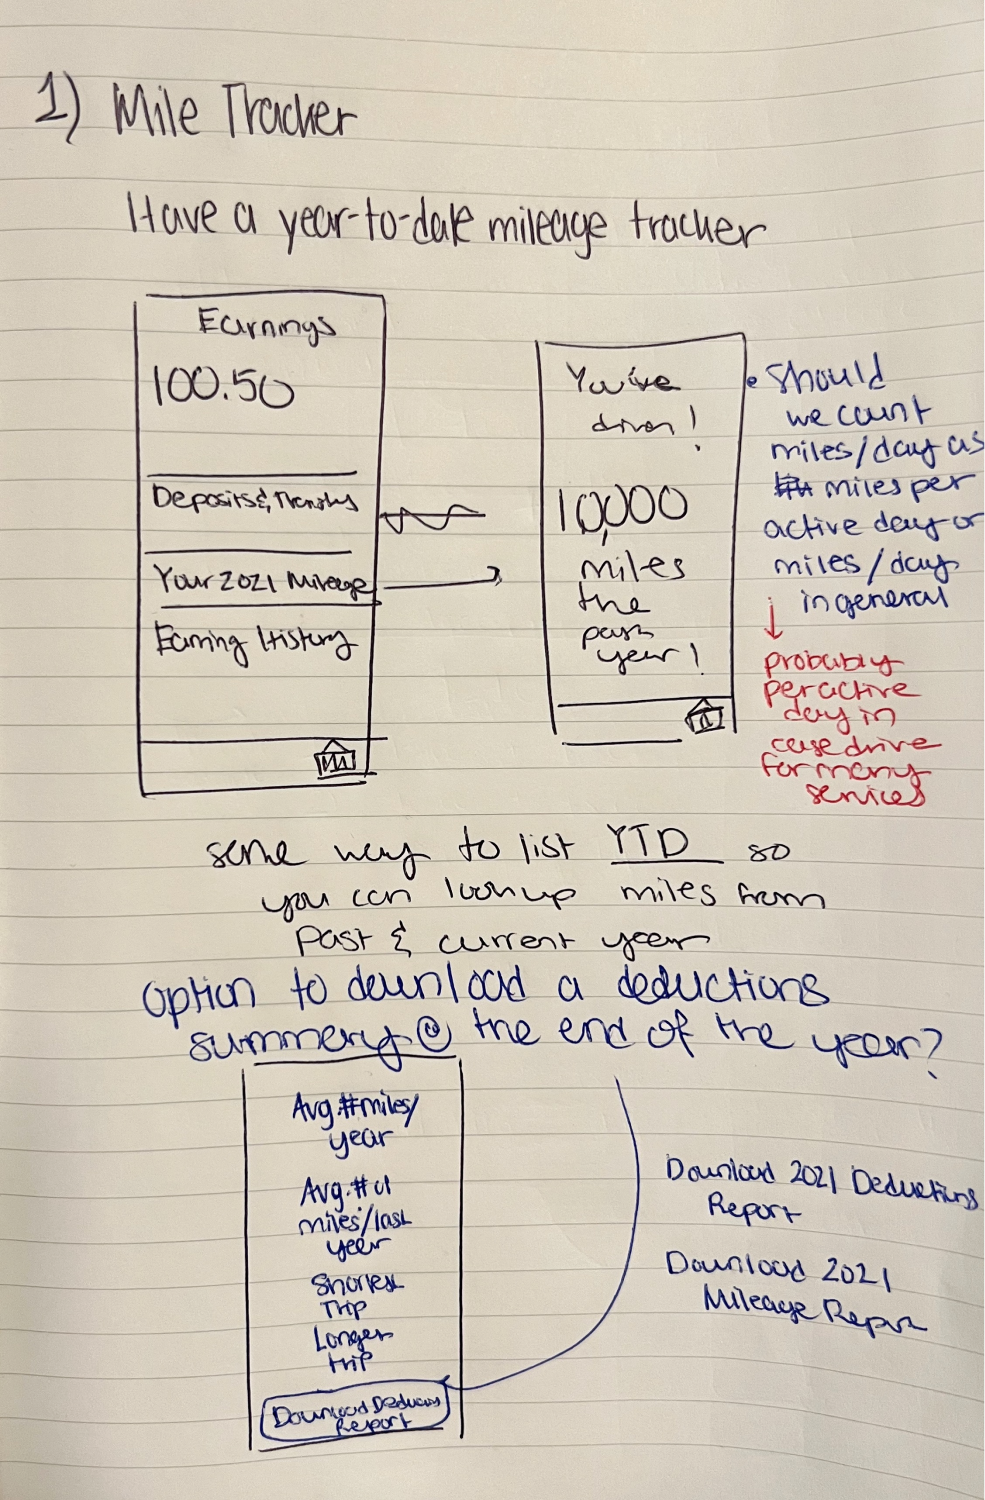 1) Mile Tracker
Have a year-to-date mileage tracker
Earnings
100.50
Deposits & Transfers
Your 2021 Mileage
Earning History
You've
driven!
10,000
miles
the
past
year!
• Should
we count
miles/day as
miles per
active day or
miles/day
in general
probably
per active
day in
case drive
for many
services
some way to list YTD so
you can lookup miles from
past & current year
option to download a deductions
summary @ the end of the year?
Avg. # miles/
year
Avg. # of
miles/last
year
Shortest
Trip
Longest
trip
Download Deductions
Report
Download 2021 Deductions
Report
Download 2021
Mileage Report